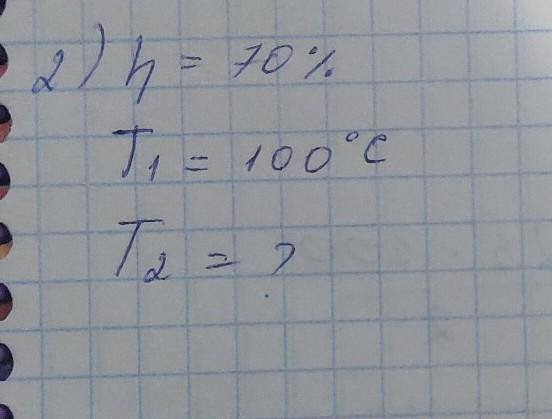 2) η = 70%
T₁ = 100°C
T₂ = ?